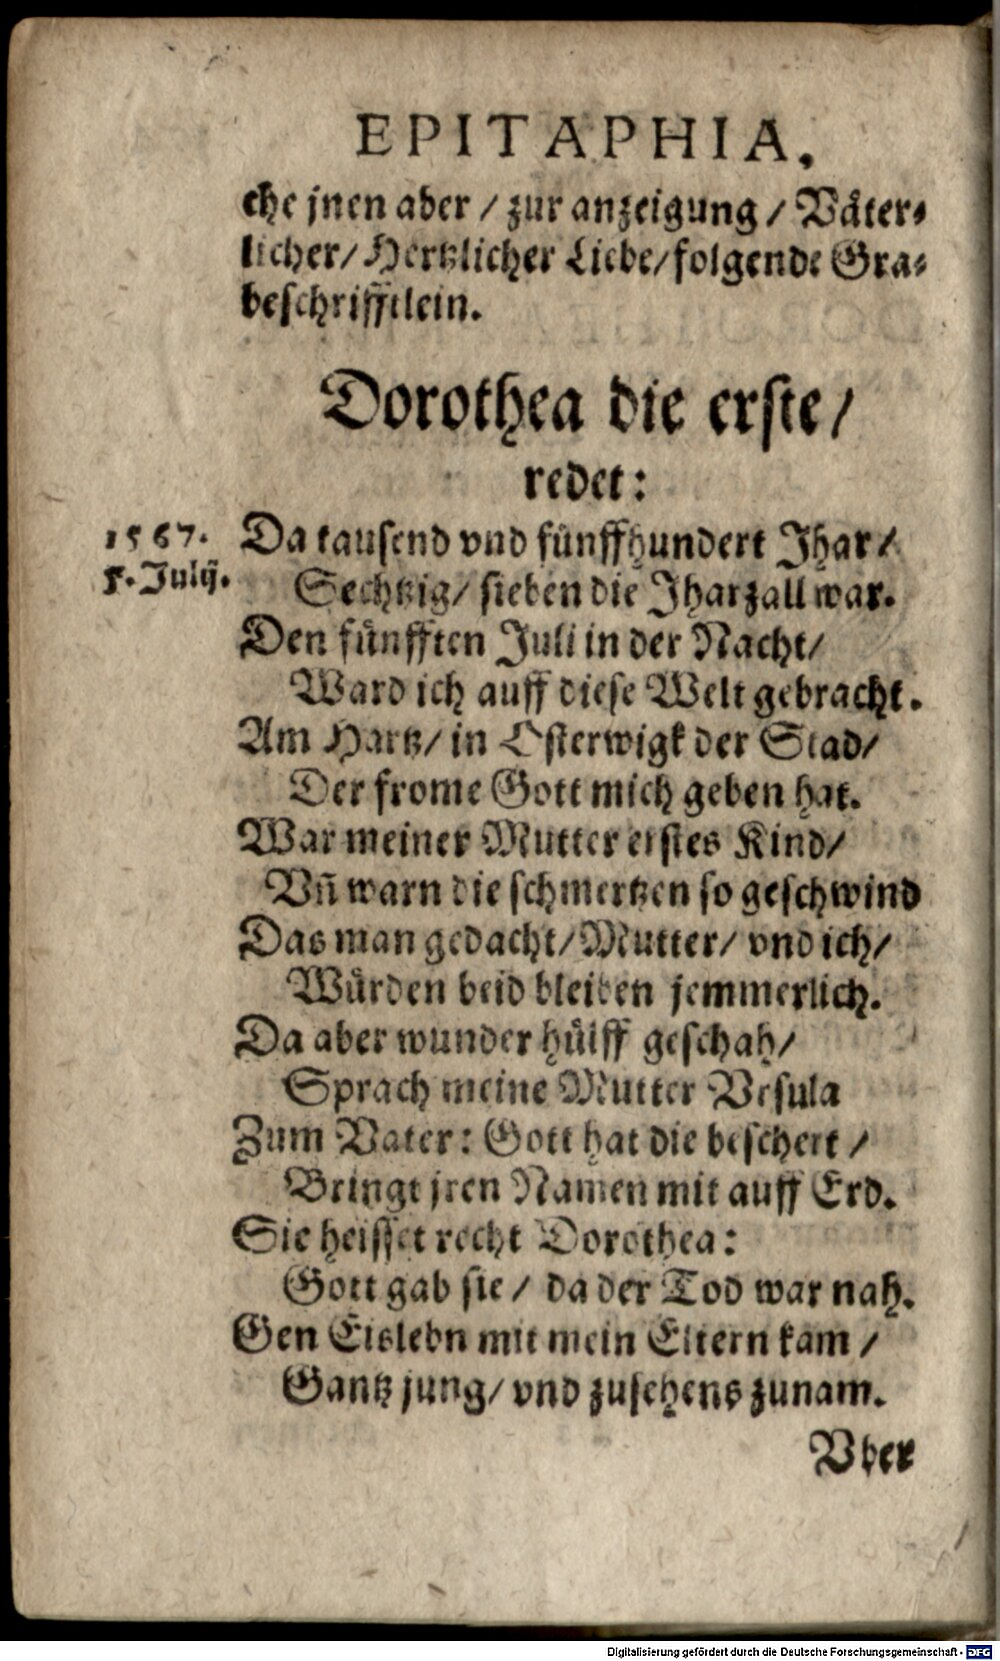 EPITAPHIA.
che jnen aber / zur anzeigung / Vaͤter⸗
licher / Hertzlicher Liebe / folgende Gra⸗
beschrifftlein.
Dorothea die erste /
redet:
1567.
5. Julij.
Da tausend vnd fuͤnffhundert Jhar /
Sechtzig / sieben die Jharzall war.
Den fuͤnfften Juli in der Nacht /
Ward ich auff diese Welt gebracht.
Am Hartz / in Osterwigk der Stad /
Der frome Gott mich geben hat.
War meiner Mutter erstes Kind /
Vñ warn die schmertzen so geschwind
Das man gedacht / Mutter / vnd ich /
Wuͤrden beid bleiben jemmerlich.
Da aber wunder huͤlff geschah /
Sprach meine Mutter Vrsula
Zum Vater: Gott hat die beschert /
Bringt jren Namen mit auff Erd.
Sie heisset recht Dorothea:
Gott gab sie / da der Tod war nah.
Gen Eislebn mit mein Eltern kam /
Gantz jung / vnd zusehens zunam.
Vber
Digitalisierung gefördert durch die Deutsche Forschungsgemeinschaft - DFG